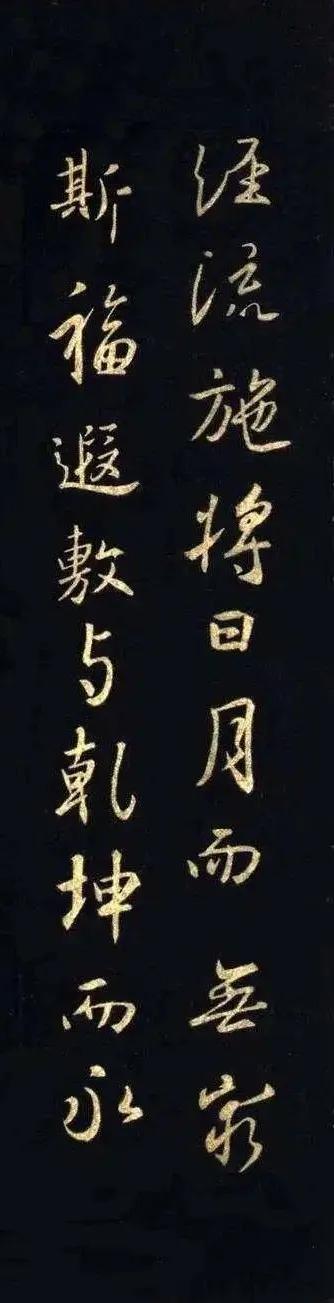 經流施將日月而無窮
斯福遐敷与乾坤而永